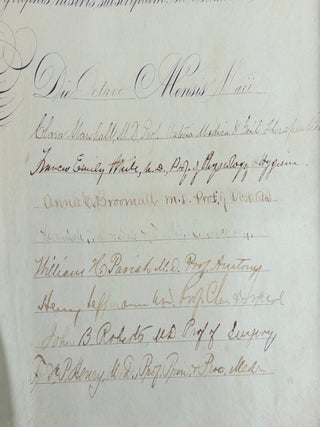 Die Octavo Mensis Maii
Clara Marshall, M.D. Prof. Materia Medica & Genl. Therapeutics
Frances Emily White, M.D., Prof. of Physiology & Hygiene
Anna E. Broomall M.D. Prof. of Obstetrics
William H. Parish M.D. Prof. Anatomy
Henry Leffmann M.D. Prof. Chem & Toxicol
John B Roberts M.D Prof of Surgery
F. P. Henry, M.D., Prof. Prin. & Prac. Med.